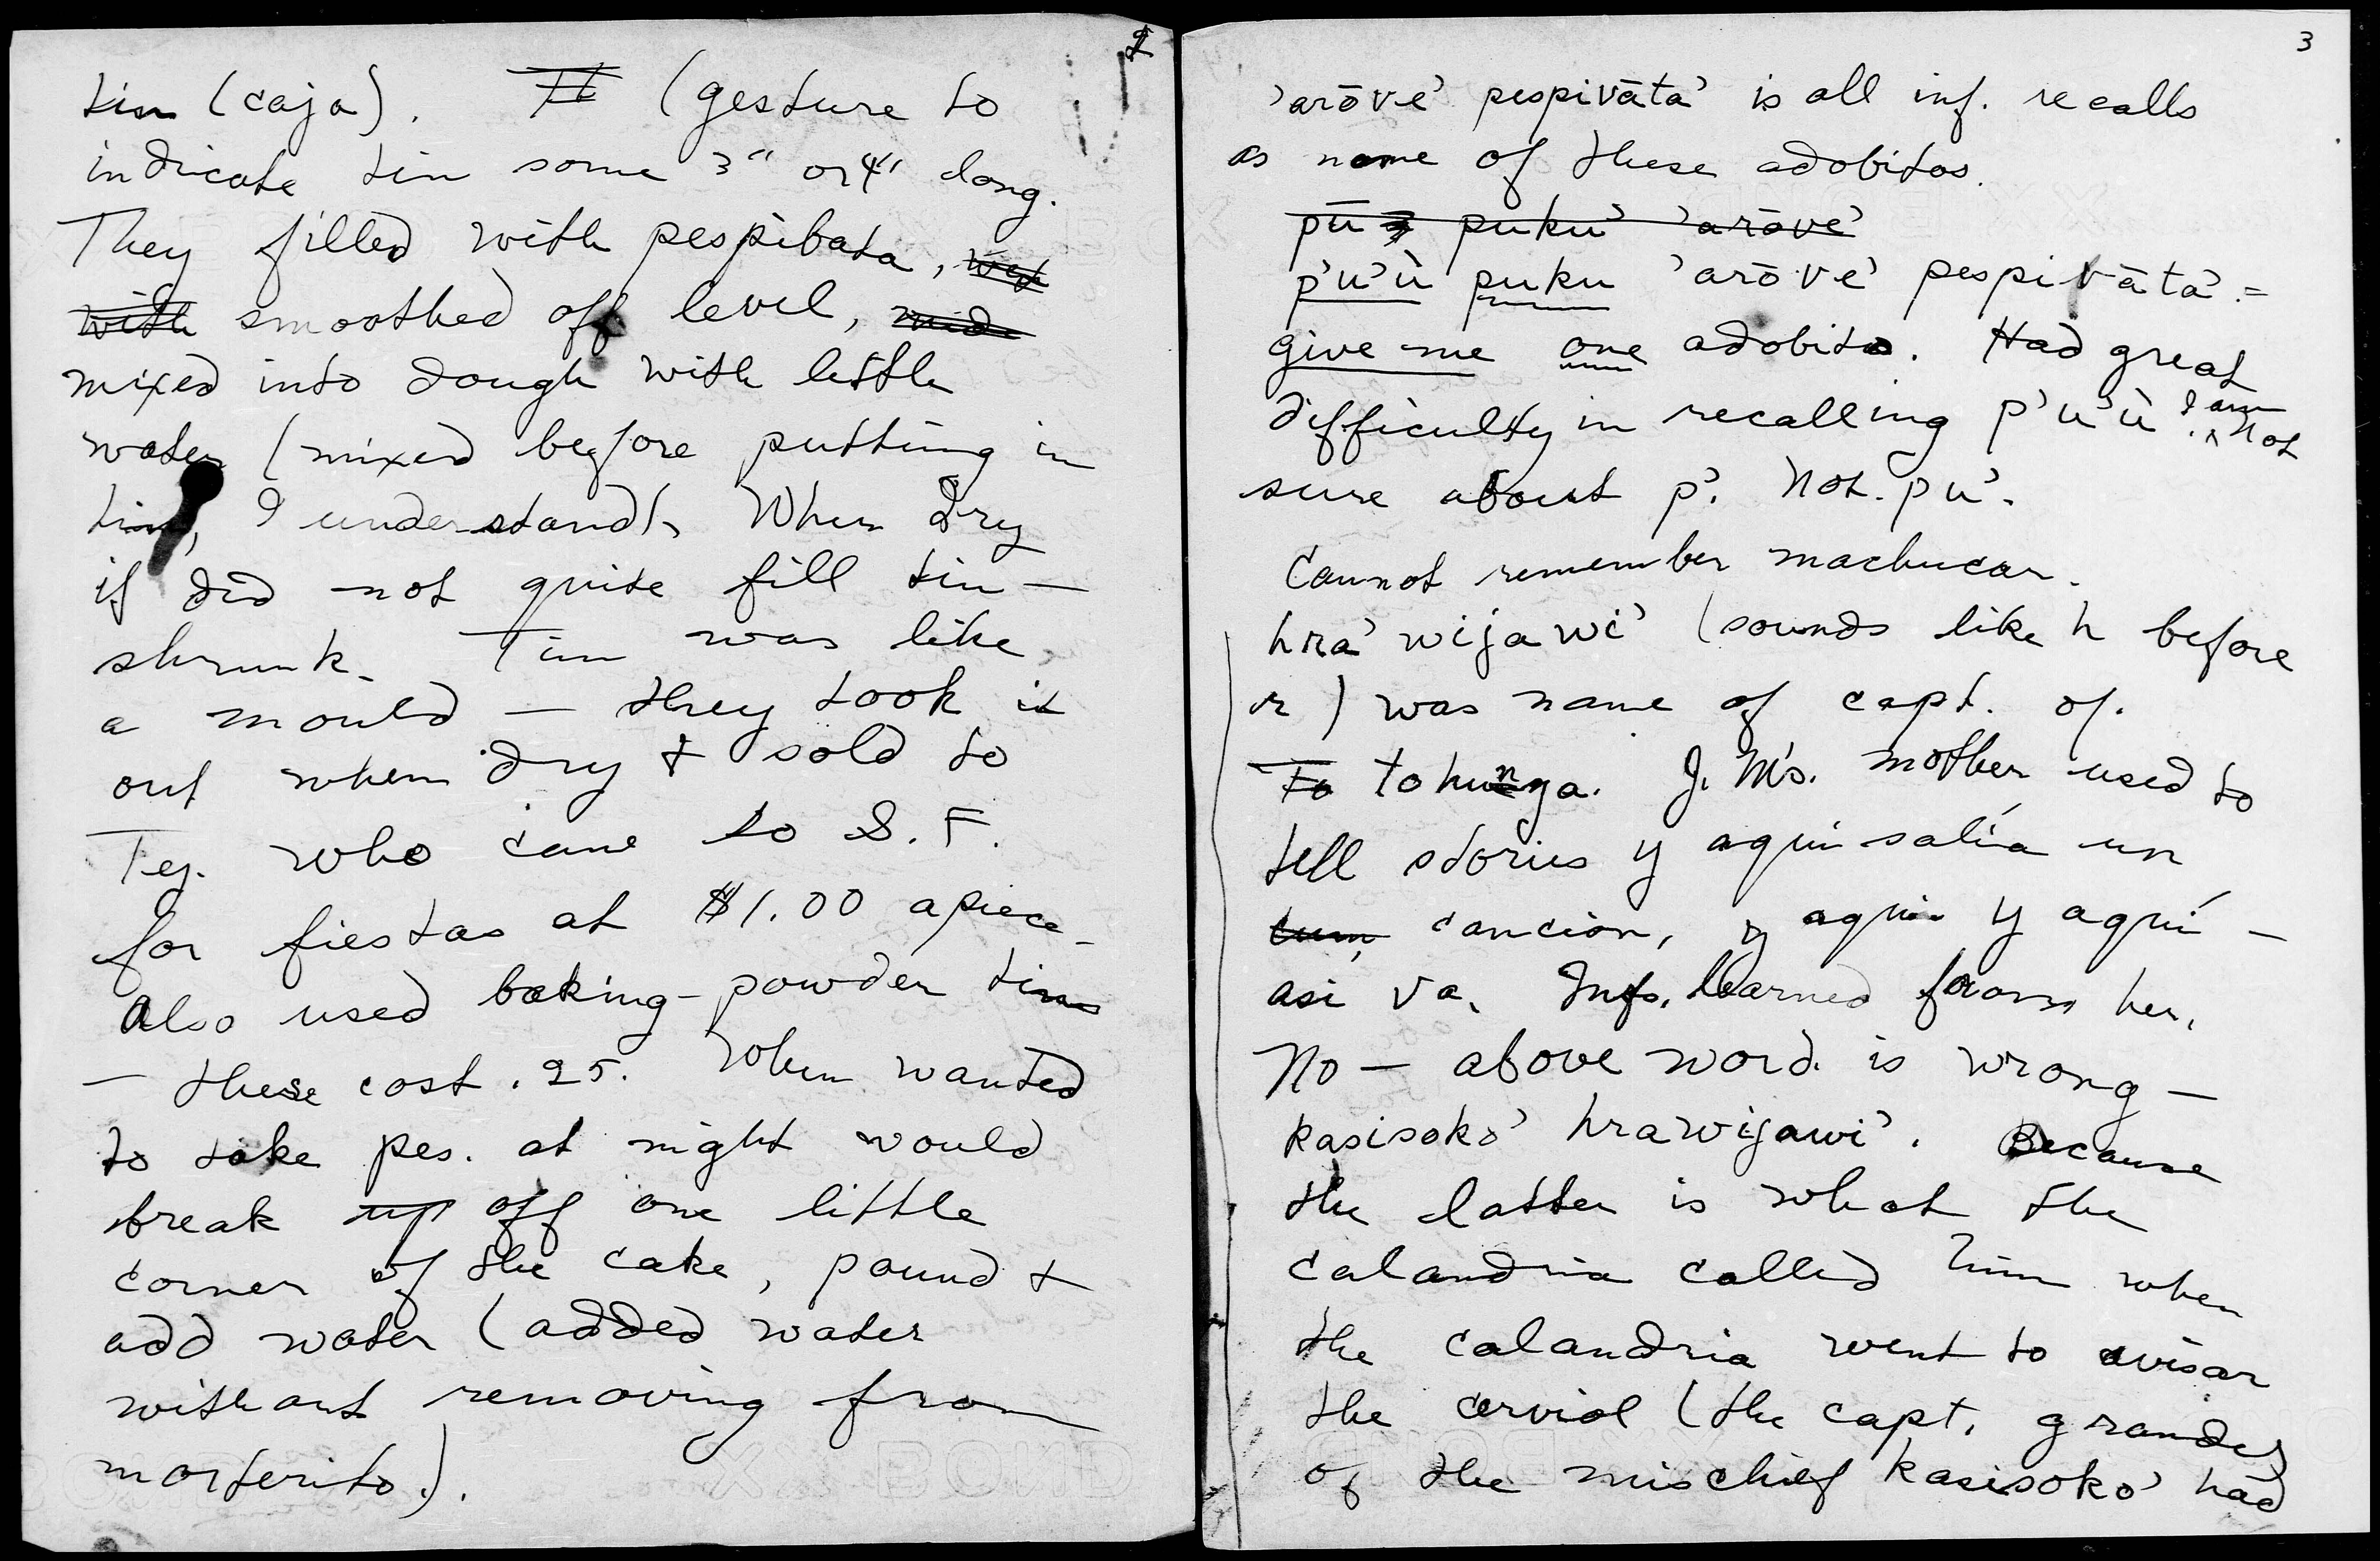 2
tin (caja). It (gesture to
indicate tin some 3" or 4" long.
They filled with pespibata, wet
with smoothed off level, mide
mixed into dough with little
water (mixed before putting in
tin, I understand). When dry
if did not quite fill tin —
shrunk. Tin was like
a mould — they took it
out when dry + sold to
Tej. who came to S. F.
for fiestas at $1.00 apiece.
Also used baking-powder tins
— these cost .25. When wanted
to take pes. at night would
break up off one little
corner of the cake, pound +
add water (added water
without removing from
morterito).
3
'arōve' pespivāta' is all inf. recalls
as name of these adobitos.
pū puku' 'arōve'
p'u'ù puku 'arōve' pespivāta' =
give me one adobito. Had great
difficulty in recalling p'u'ù. I am not
sure about p'. Not pu'.
Cannot remember machucar.
hra'wijawi' (sounds like h before
r) was name of capt. of.
To tohunga. J. M's. mother used to
tell stories y aquí salía un
cancion, y aqui y aquí —
asi va. Infs. learned from her.
No — above word is wrong —
kasisoko' hrawijawi'. Because
the latter is what the
calandria called him when
the calandria went to avisar
the cerviol (the capt. grandes)
of the mischief kasisoko' had